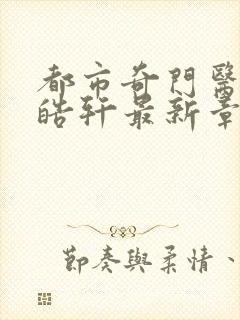 都市奇門醫
皓軒最新章
節奏與柔情、